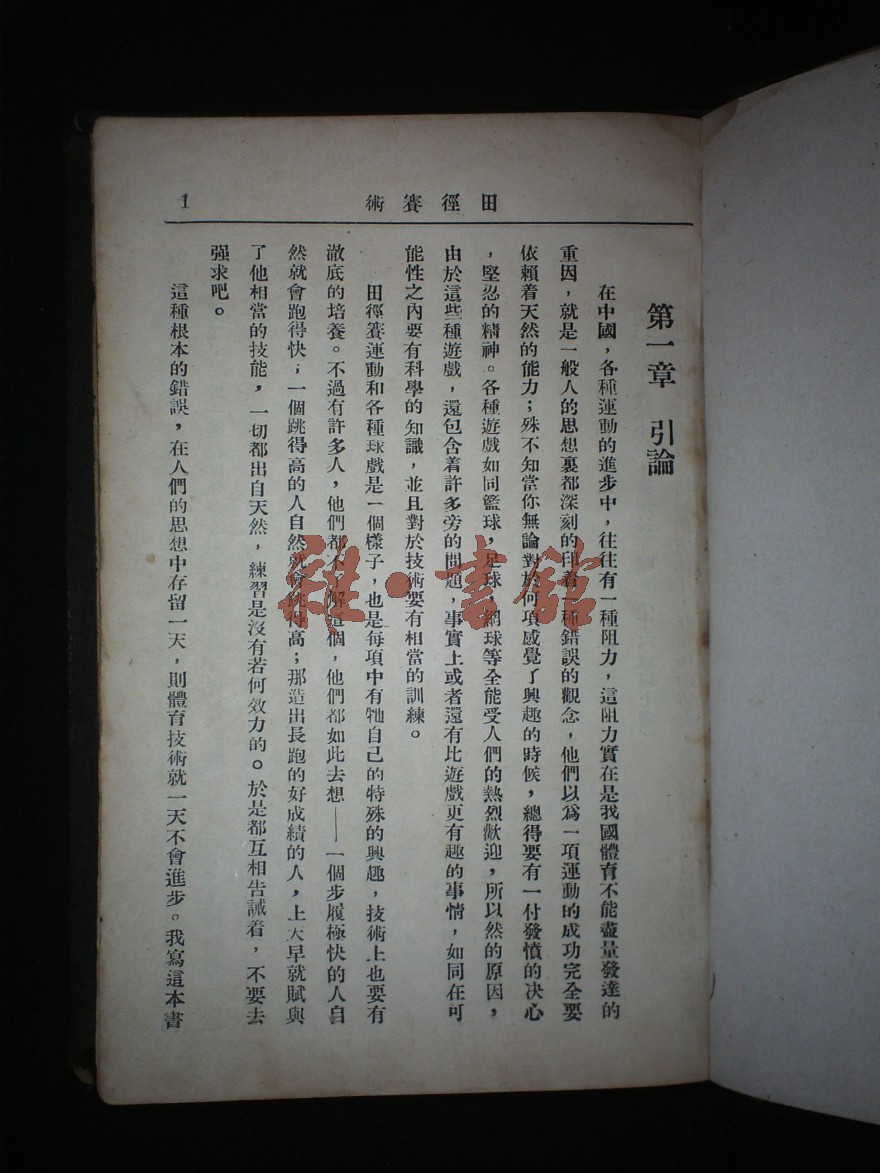 田徑賽術
1
第一章 引論
在中國，各種運動的進步中，往往有一種阻力，這阻力實在是我國體育不能盡量發達的
重因，就是一般人的思想裏都深刻的印着一種錯誤的觀念，他們以爲一項運動的成功完全要
依賴着天然的能力；殊不知當你無論對於何項感覺了興趣的時候，總得要有一付發憤的决心
，堅忍的精神。各種遊戲如同籃球，足球，網球等全能受人們的熱烈歡迎，所以然的原因，
由於這些種遊戲，還包含着許多旁的問題，事實上或者還有比遊戲更有趣的事情，如同在可
能性之內要有科學的知識，並且對於技術要有相當的訓練。
田徑賽運動和各種球戲是一個樣子，也是每項中有牠自己的特殊的興趣，技術上也要有
澈底的培養。不過有許多人，他們都不解這個，他們都如此去想——一個步履極快的人自
然就會跑得快；一個跳得高的人自然就會跳得高；那造出長跑的好成績的人，上天早就賦與
了他相當的技能，一切都出自天然，練習是沒有若何效力的。於是都互相告誡着，不要去
强求吧。
這種根本的錯誤，在人們的思想中存留一天，則體育技術就一天不會進步。我寫這本書
雜·書館